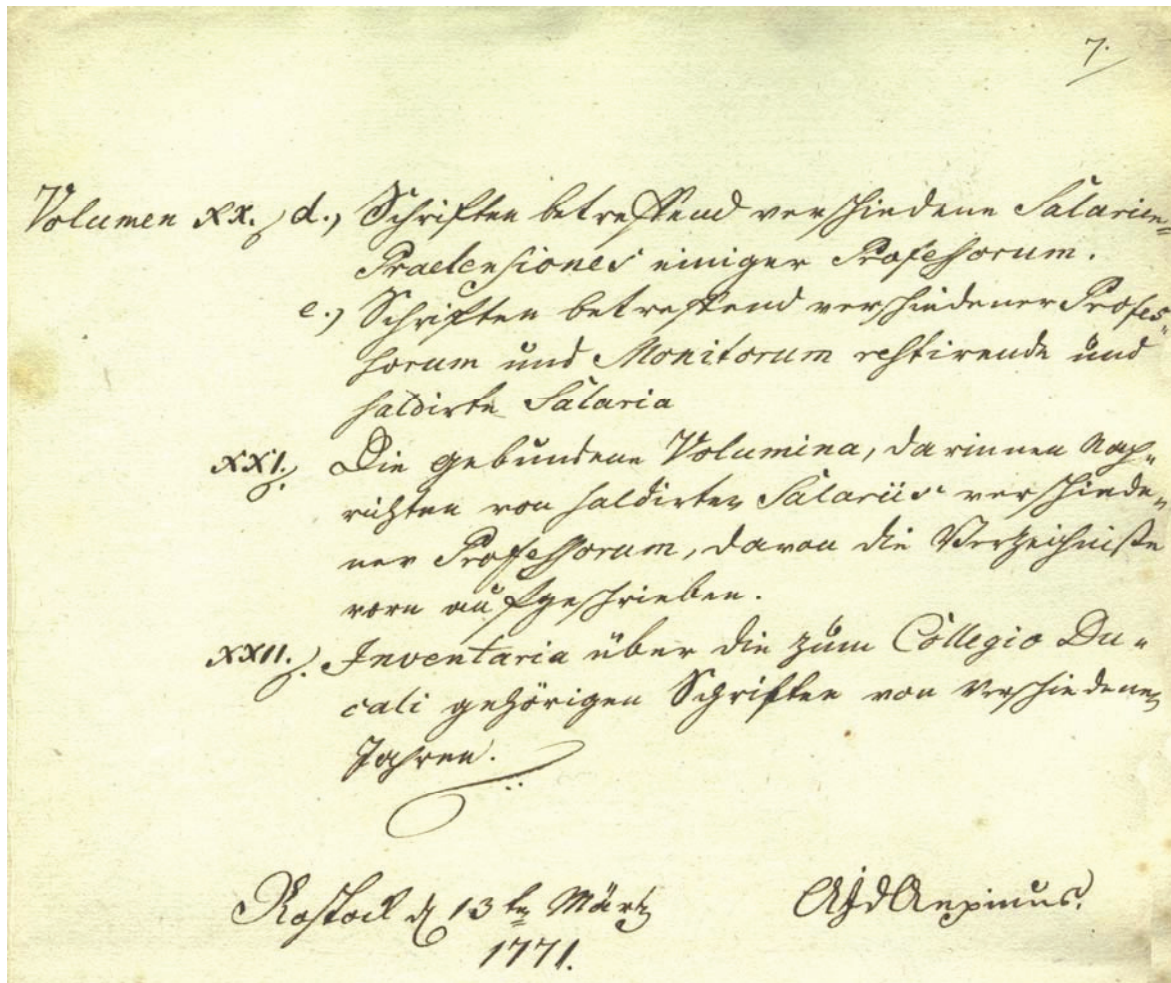 7.
Volumen XX. d., Schriften betreffend verschiedene Salarien-
Praetensiones einiger Professorum.
e., Schriften betreffend verschiedener Profes-
sorum und Monitorum restirende und
saldirte Salaria
XXI. Die gebundene Volumina, darinnen Nach-
richten von saldirten Salariis verschiede-
ner Professorum, davon die Verzeichniße
vorn aufgeschrieben.
XXII. Inventaria über die zum Collegio Du-
cali gehörigen Schriften von verschiedenen
Jahren.
Rostock d 13ten Märtz
1771.
AJDAepinus.